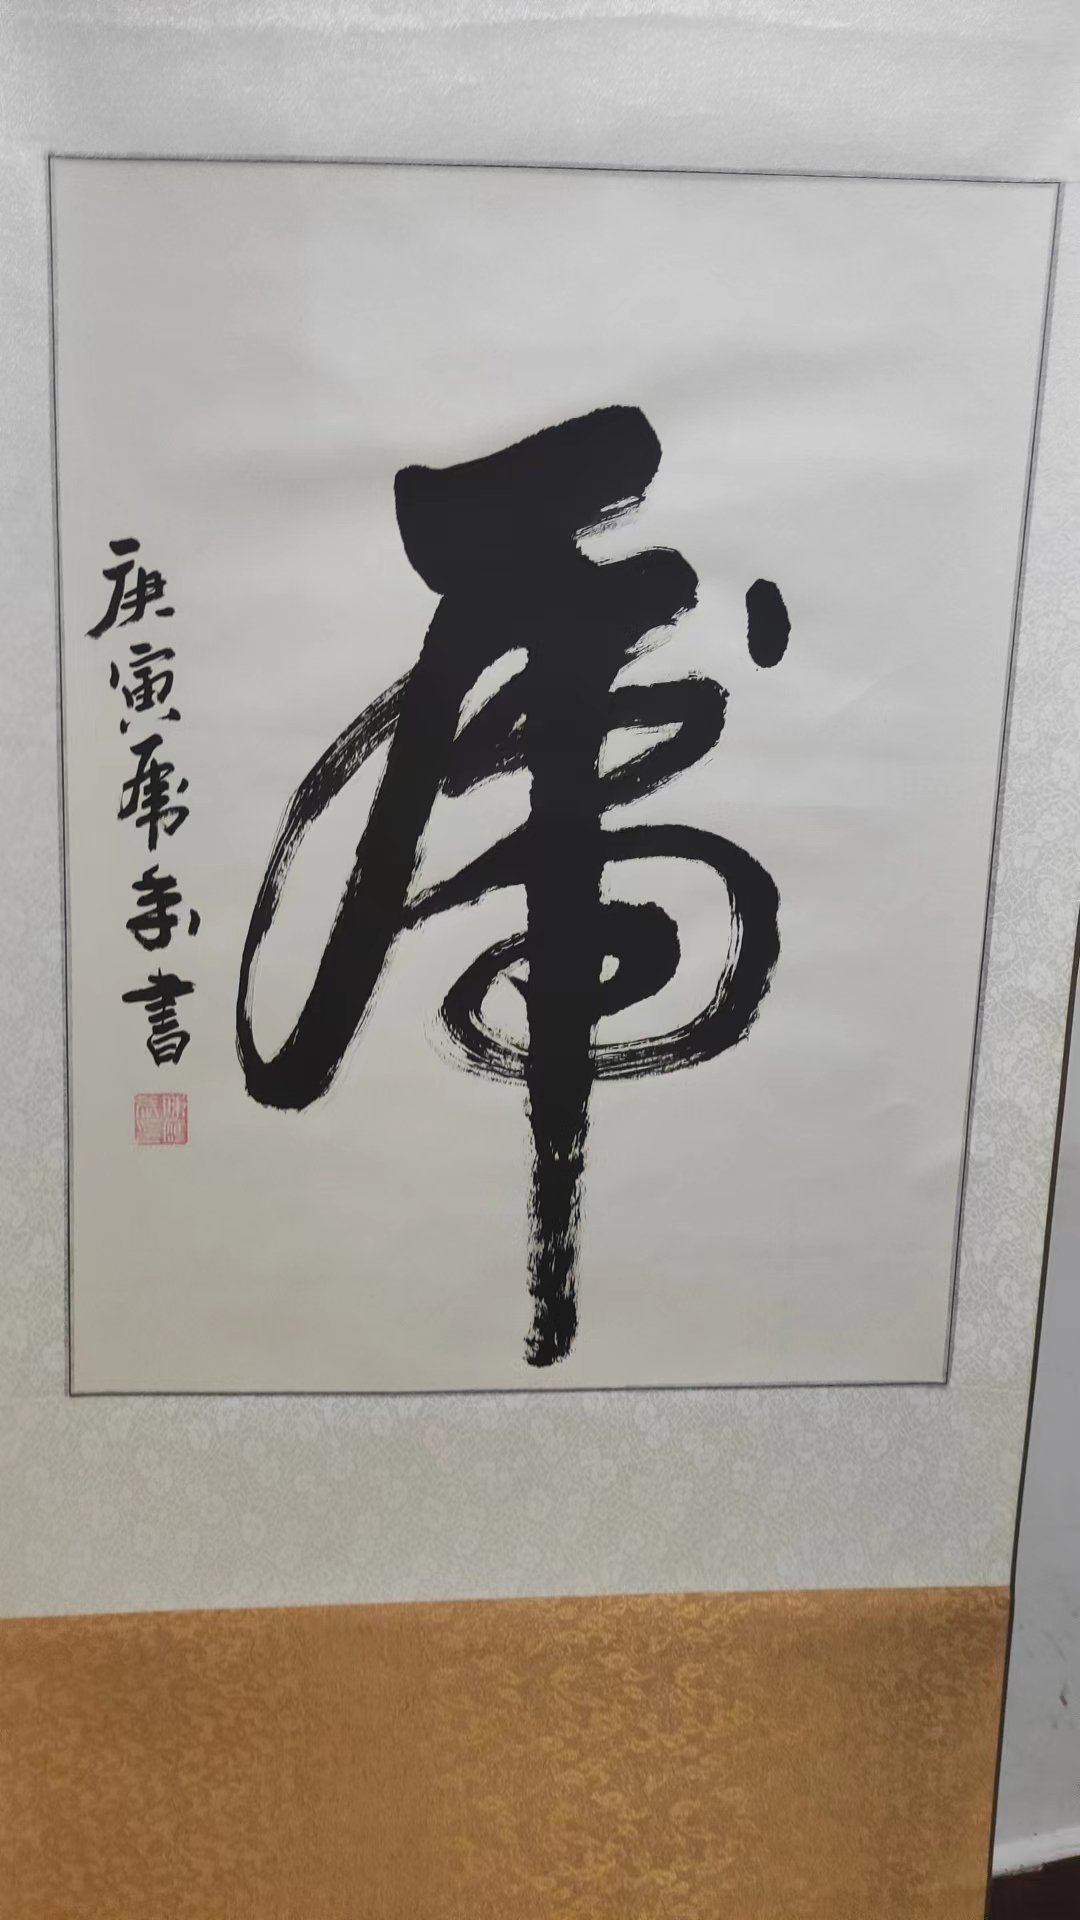 虎
庚寅虎年書